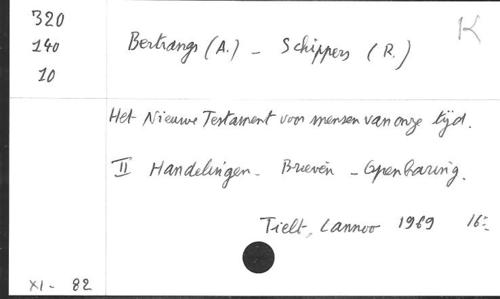 320
140
10
K
Bertrangs (A.) - Schippers (R.)
Het Nieuwe Testament voor mensen van onze tijd.
II Handelingen - Brieven - Openbaring.
Tielt, Lannoo 1969 16=
XI - 82